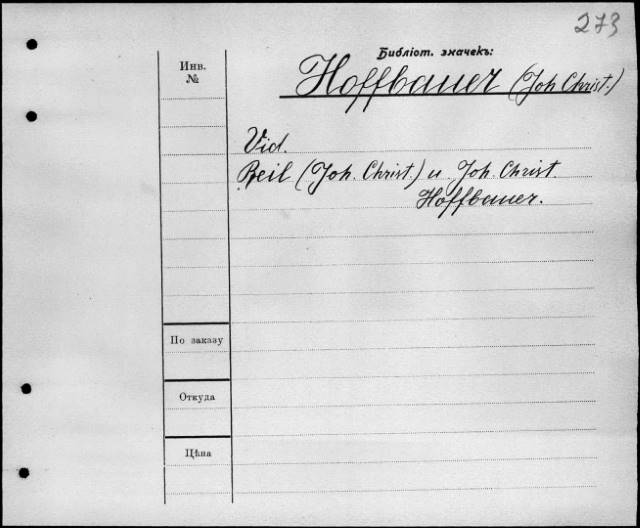 273
Библіот. значекъ:
Инв.
№
Hoffbauer (Joh Christ.)
Vid.
Reil (Joh. Christ.) u. Joh. Christ
Hoffbauer.
По заказу
Откуда
Цѣна